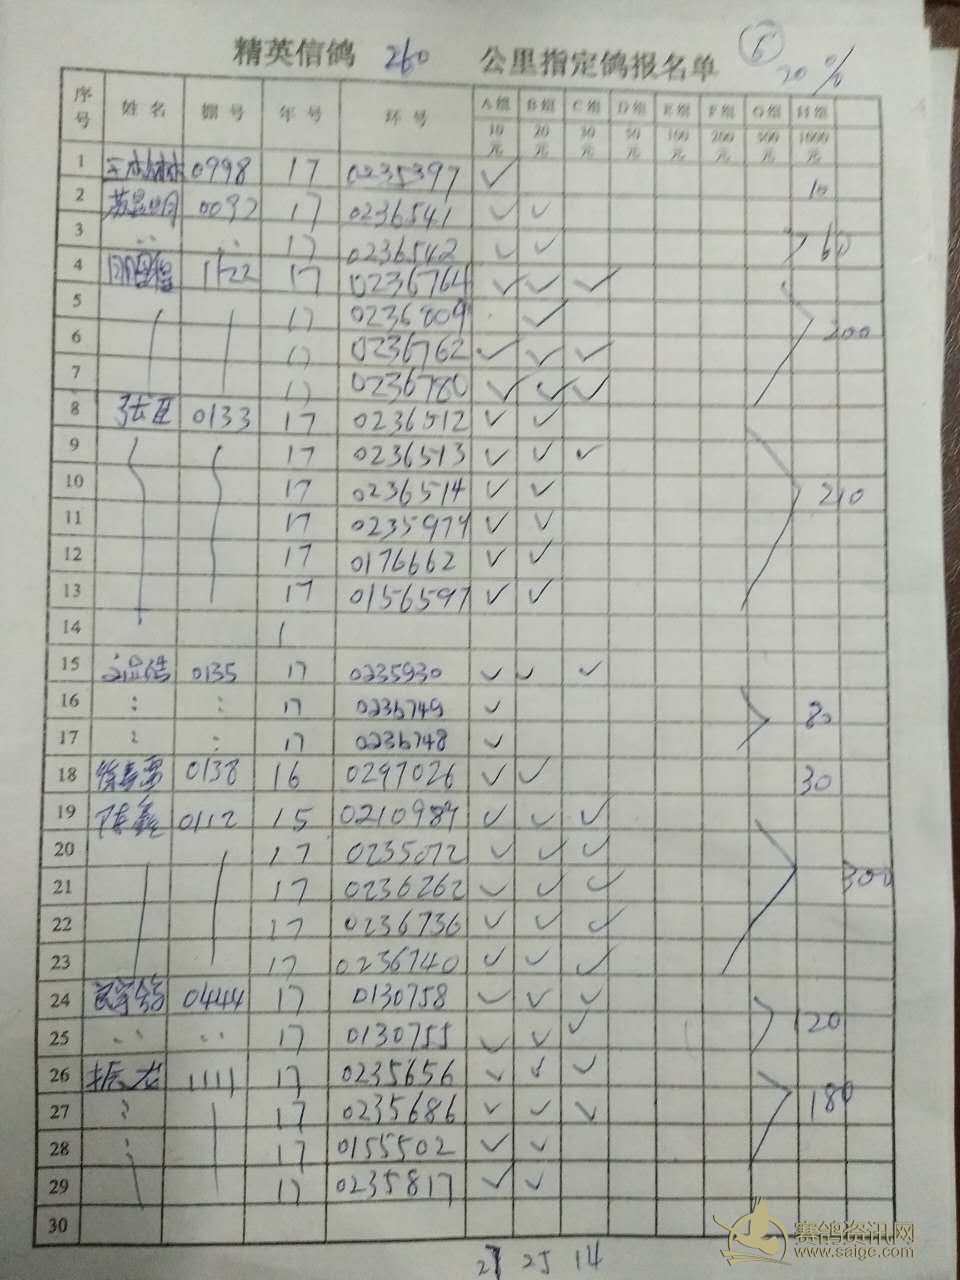 精英信鸽 260 公里指定鸽报名单 6 20%
序号 姓名 棚号 年号 环号 A组 B组 C组 D组 E组 F组 G组 H组
10元 20元 30元 50元 100元 200元 500元 1000元
1 王林林 0998 17 0235397 ✓ 10
2 苏显明 0092 17 0236541 ✓ ✓
3 17 0236542 ✓ ✓ 60
4 1122 17 0236764 ✓ ✓ ✓
5 17 0236809 ✓ 200
6 17 0236762 ✓ ✓ ✓
7 17 0236780 ✓ ✓ ✓
8 0133 17 0236512 ✓ ✓
9 17 0236513 ✓ ✓ ✓
10 17 0236514 ✓ ✓ 210
11 17 0235974 ✓ ✓
12 17 0176662 ✓ ✓
13 17 0156597 ✓ ✓
14
15 0135 17 0235930 ✓ ✓ ✓
16 17 0236749 ✓ 80
17 17 0236748 ✓
18 0138 16 0297026 ✓ ✓ 30
19 陈鑫 0112 15 0210987 ✓ ✓ ✓
20 17 0235072 ✓ ✓ ✓
21 17 0236262 ✓ ✓ ✓ 300
22 17 0236736 ✓ ✓ ✓
23 17 0236740 ✓ ✓ ✓
24 0444 17 0130758 ✓ ✓ ✓
25 17 0130755 ✓ ✓ ✓ 120
26 振龙 1111 17 0235656 ✓ ✓ ✓
27 17 0235686 ✓ ✓ ✓ 180
28 17 0155502 ✓ ✓
29 17 0235817 ✓ ✓
30
27 25 14
赛鸽资讯网
www.saige.com